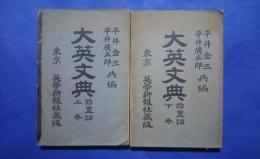 平井金三
平井廣五郎 共編
大英文典 前置詞
上卷
東京 英學新報社蔵版
平井金三
平井廣五郎 共編
大英文典 前置詞
下卷
東京 英學新報社蔵版